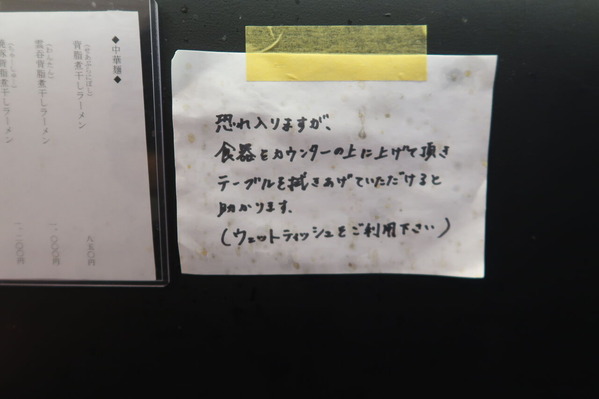 恐れ入りますが、
食器をカウンターの上に上げて頂き
テーブルを拭きあげていただけると
助かります。
(ウェットティッシュをご利用下さい)
◆中華麺◆
(せあぶらにぼし)
背脂煮干しラーメン
八五〇円
(わんたん)
雲呑背脂煮干しラーメン
一、〇〇〇円
背脂煮干しラーメン
一、二〇〇円